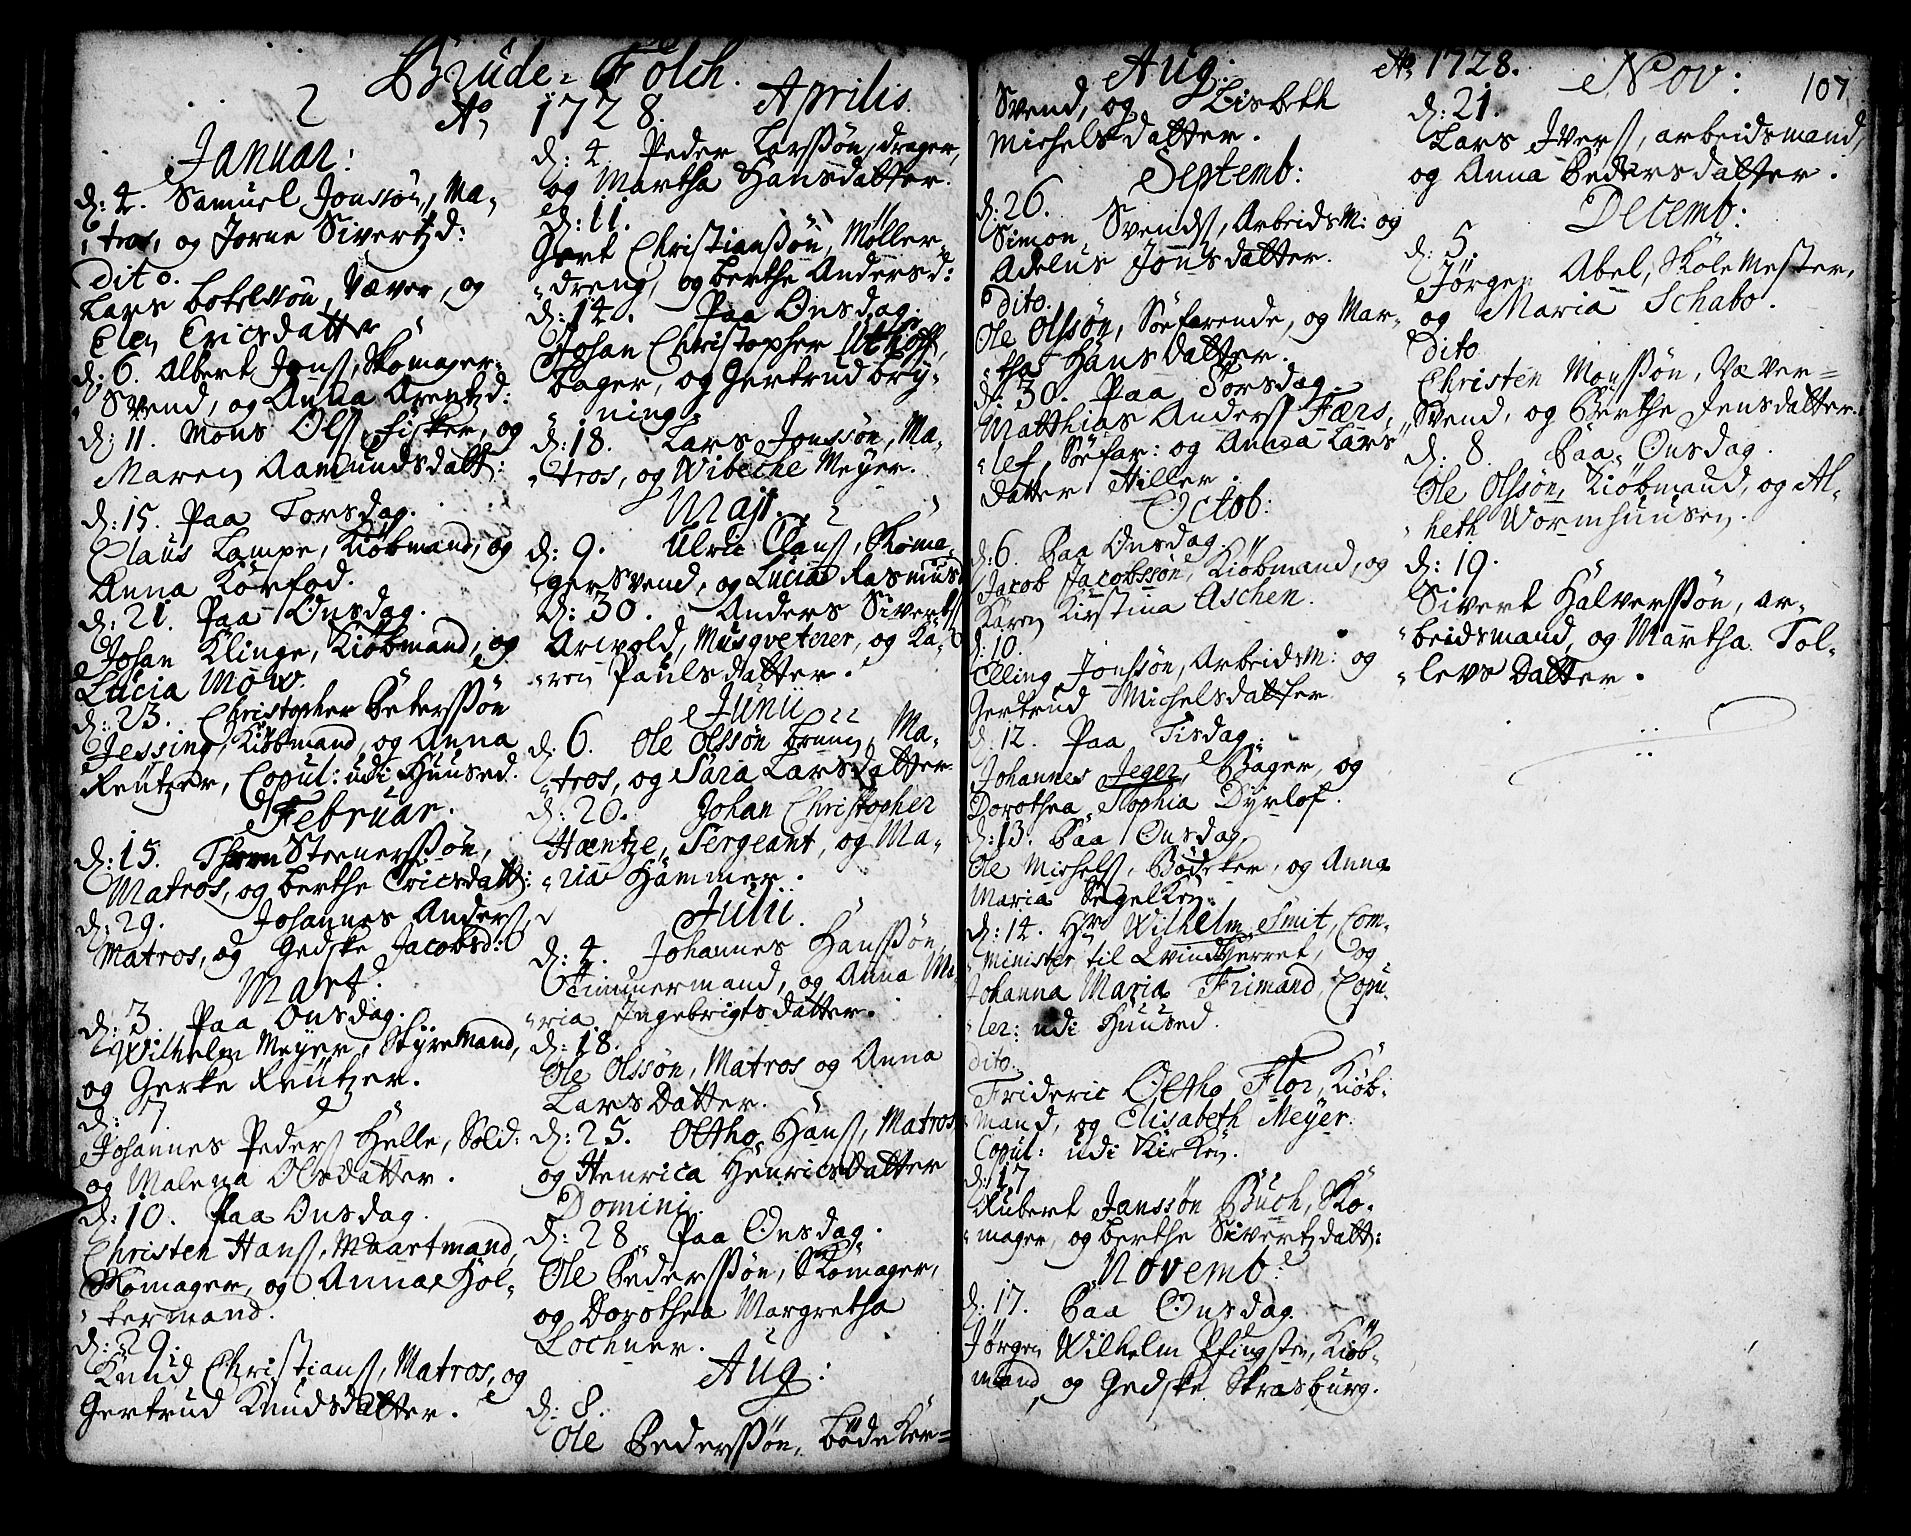 Brude-Folch.
Ao 1728.
Januar:
d: 4. Samuel Jonssøn, Ma-
tros, og Jorne Sivertzd:
Dito.
Lars Botelssøn, Væver, og
Elen Ericsdatter
d: 6. Albert Jonss, Skomager-
Svend, og Anna Arentzd:
d: 11. Mons Olss, Fisker, og
Maren Aamundsdatt:
d: 15. Paa Torsdag.
Claus Lampe, Kiøbmand, og
Anna Korfod.
d: 21. Paa Onsdag.
Johan Klinge, Kiøbmand, og
Lucia Mow.
d: 23. Christopher Pederssøn
Jessing, Kiøbmand, og Anna
Reutzer, Copul: udi Huused.
Februar.
d: 15. Steenerssøn,
Matros, og Berthe Ericsdatt:
d: 29. Johannes Anderss,
Matros, og Gedske Jacobsd:
Mart.
d: 3. Paa Onsdag.
Wilhelm Meyer, Styremand,
og Gerke Reutzer.
d: 7.
Johannes Pederss Helle, Sold:
og Malena Olsdatter.
d: 10. Paa Onsdag.
Christen Hanss, Maartmand,
Skomager, og Anna Hol-
termand.
d: 29.
Knud Christianss, Matros, og
Gertrud Knudsdatter.
Aprilis.
d: 4. Peder Larssøn, drager,
og Martha Hansdatter.
d: 11.
Gert Christianssøn, Møller-
dreng, og Berthe Andersd:
d: 14. Paa Onsdag.
Johan Christopher
Bager, og Gertrud Bry-
ning.
d: 18. Lars Jonssøn, Ma-
tros, og Wibeche Meyer.
Maji.
d: 9. Ulric Clauss, Skoma-
gersvend, og Lucia Rasmusd
d: 30. Anders Sivertss
Arwold, Musqveterer, og Ka-
ren Paulsdatter.
Junii
d: 6. Ole Olssøn Bruun, Ma-
tros, og Sara Larsdatter
d: 20. Johan Christopher
Hæntze, Sergeant, og Ma-
ria Hammer.
Julii.
d: 4. Johannes Hanssøn,
Timmermand, og Anna Ma-
ria Ingebrigtsdatter.
d: 18.
Ole Olssøn, Matros og Anna
Lars Datter.
d: 25. Oltho Hanss, Matros
og Henrica Henricsdatter
Domini.
d: 28 Paa Onsdag.
Ole Pederssøn, Skomager,
og Dorothea Margretha
Lochner.
Aug:
d: 8.
Ole Pederssøn, Bødeker-
Aug: Ao 1728. Nov: 107
Svend, og Lisbeth
Michelsdatter.
Septemb:
d: 26.
Simon Svendss, Arbeidsm: og
Adelus Jonsdatter.
Dito.
Ole Olssøn, Søefarende, og Mar-
tha Hansdatter.
d: 30. Paa Torsdag.
Matthias Anderss Færs,
lef, Søefar: og Anna Lars
datter Hiller.
Octob:
d: 6. Paa Onsdag.
Jacob Jacobssøn, Kiøbmand, og
Karen Kirstina Aschen.
d: 10.
Elling Jonssøn, Arbeidsm: og
Gertrud Michelsdatter
d: 12. Paa Tisdag.
Johannes Jeger, Bager, og
Dorothea Sophia Dyrlof.
d: 13. Paa Onsdag.
Ole Michelss, Bødeker, og Anna
Maria Segelken.
d: 14. Hr Wilhelm Smit, Com-
minister til Qvindherret, og
Johanna Maria Frimand, Copu-
ler: udi Huused.
dito.
Frideric Oltho Flor, Kiøb-
mand, og Elisabeth Meyer.
Copul: udi Kirken.
d: 17
Rubert Janssøn Buch, Sko-
mager, og Berthe Sivertzdatt:
Novemb:
d: 17. Paa Onsdag.
Jørgen Wilhelm Pfingsten, Kiøb-
mand, og Gedske Strasburg.
d: 21.
Lars Iverss, arbeidsmand,
og Anna Pedersdatter.
Decemb:
d: 5.
Jørgen Abel, Skolemester,
og Maria Schabo.
Dito
Christen Monssøn, Væver-
Svend, og Berthe Jensdatter.
d: 8. Paa Onsdag.
Ole Olssøn, Kiøbmand, og Al-
heth Wormhuusen.
d: 19.
Sivert Halverssøn, ar-
beidsmand, og Martha Tol-
levs Datter.